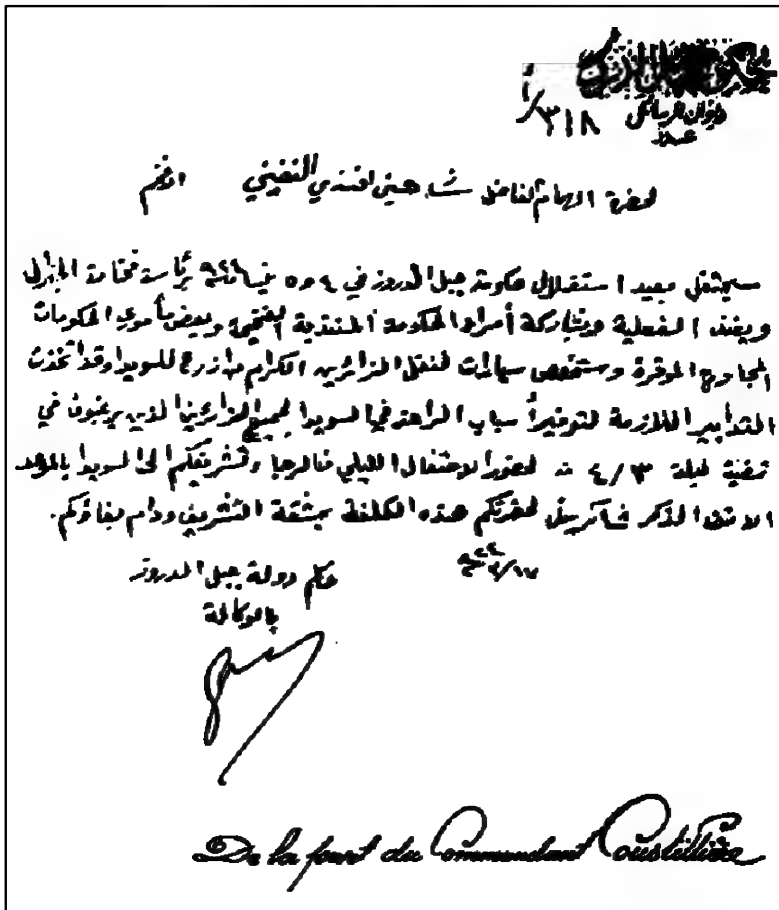 ديوان الرسائل
عدد
٣١٨/أ
لحضرة الهمام الفاضل شاهين افندي الافخم
سيحتفل بعيد استقلال حكومة جبل الدروز في ٤ و ٥ نيسان برئاسة فخامة الجنرال
ويغند السعلية وبمشاركة أمراء الحكومة المنتدبة وبعض مأموري الحكومات
المجاورة الموقرة وستخصص سيارات لنقل الزائرين الكرام من ازرع للسويدا وقد اتخذت
التدابير اللازمة لتوفير أسباب الراحة في السويدا لجميع الزائرين الذين يرغبون في
تمضية ليلة ٤/٣ منه لحضور الاحتفال الليلي فالرجا تشريفكم الى السويدا بالموعد
الانف الذكر شاكرين لحضرتكم هذه الكلفة بمشقة التشريف ودام بقاؤكم.
حاكم دولة جبل الدروز
بالوكالة
De la part du Commandant Coustillière